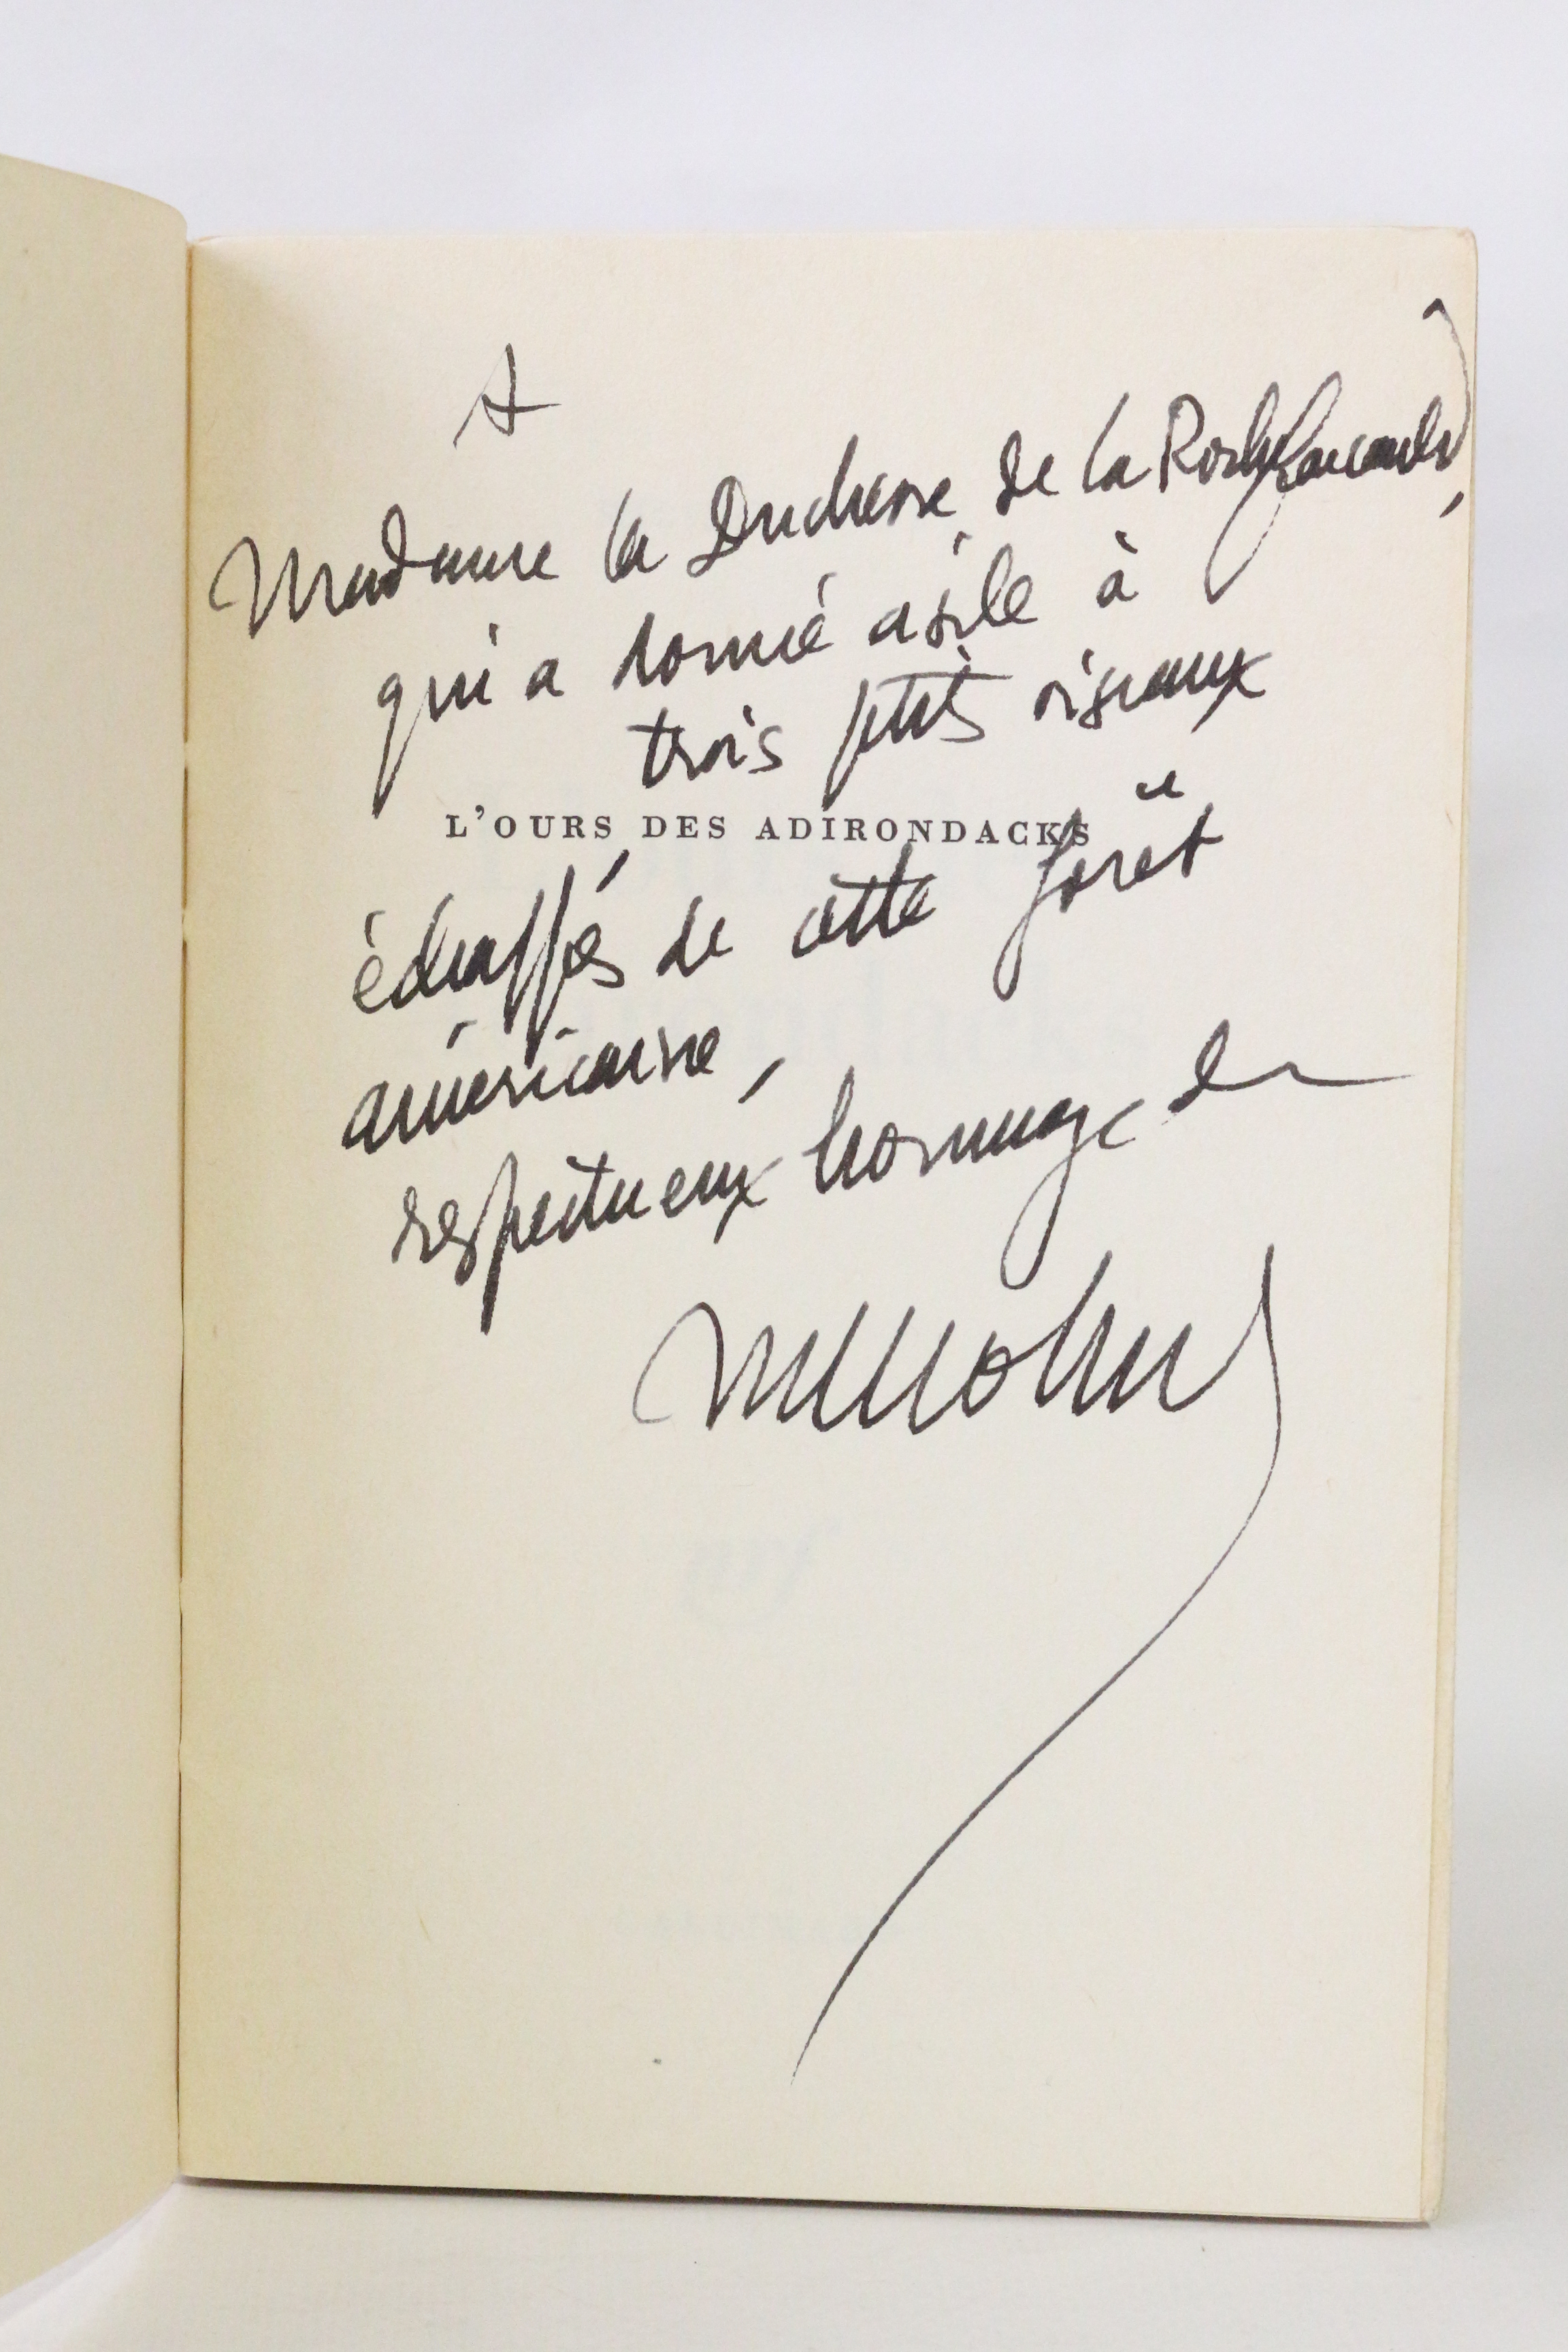 A
Madame la Duchesse de la Rochefoucauld,
qui a donné asile à
trois petits oiseaux
L'OURS DES ADIRONDACKS
échappés de cette forêt
américaine,
respectueux hommage de